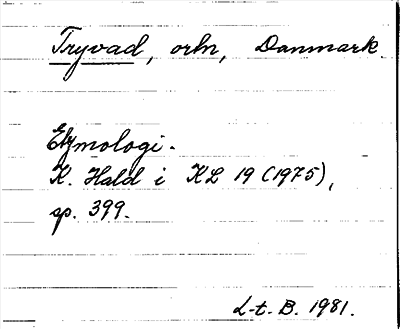 Tryvad, orln, Danmark
Etymologi.
K. Hald i KL 19 (1975),
sp. 399.
L-t. B. 1981.